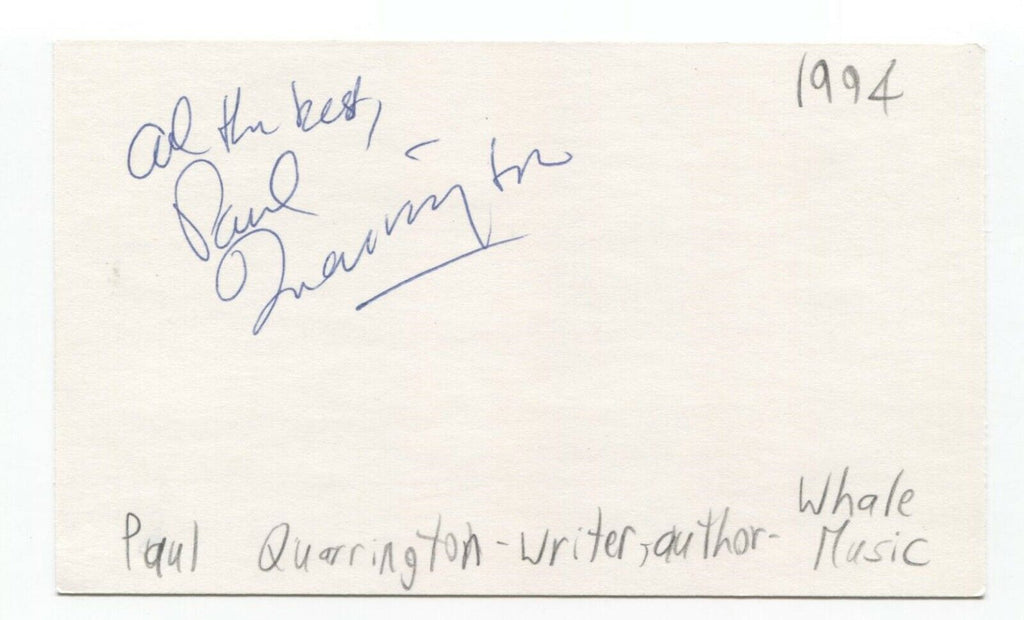 1994
All the best,
Paul
Quarrington
Whale
Paul Quarrington - writer, author - Music